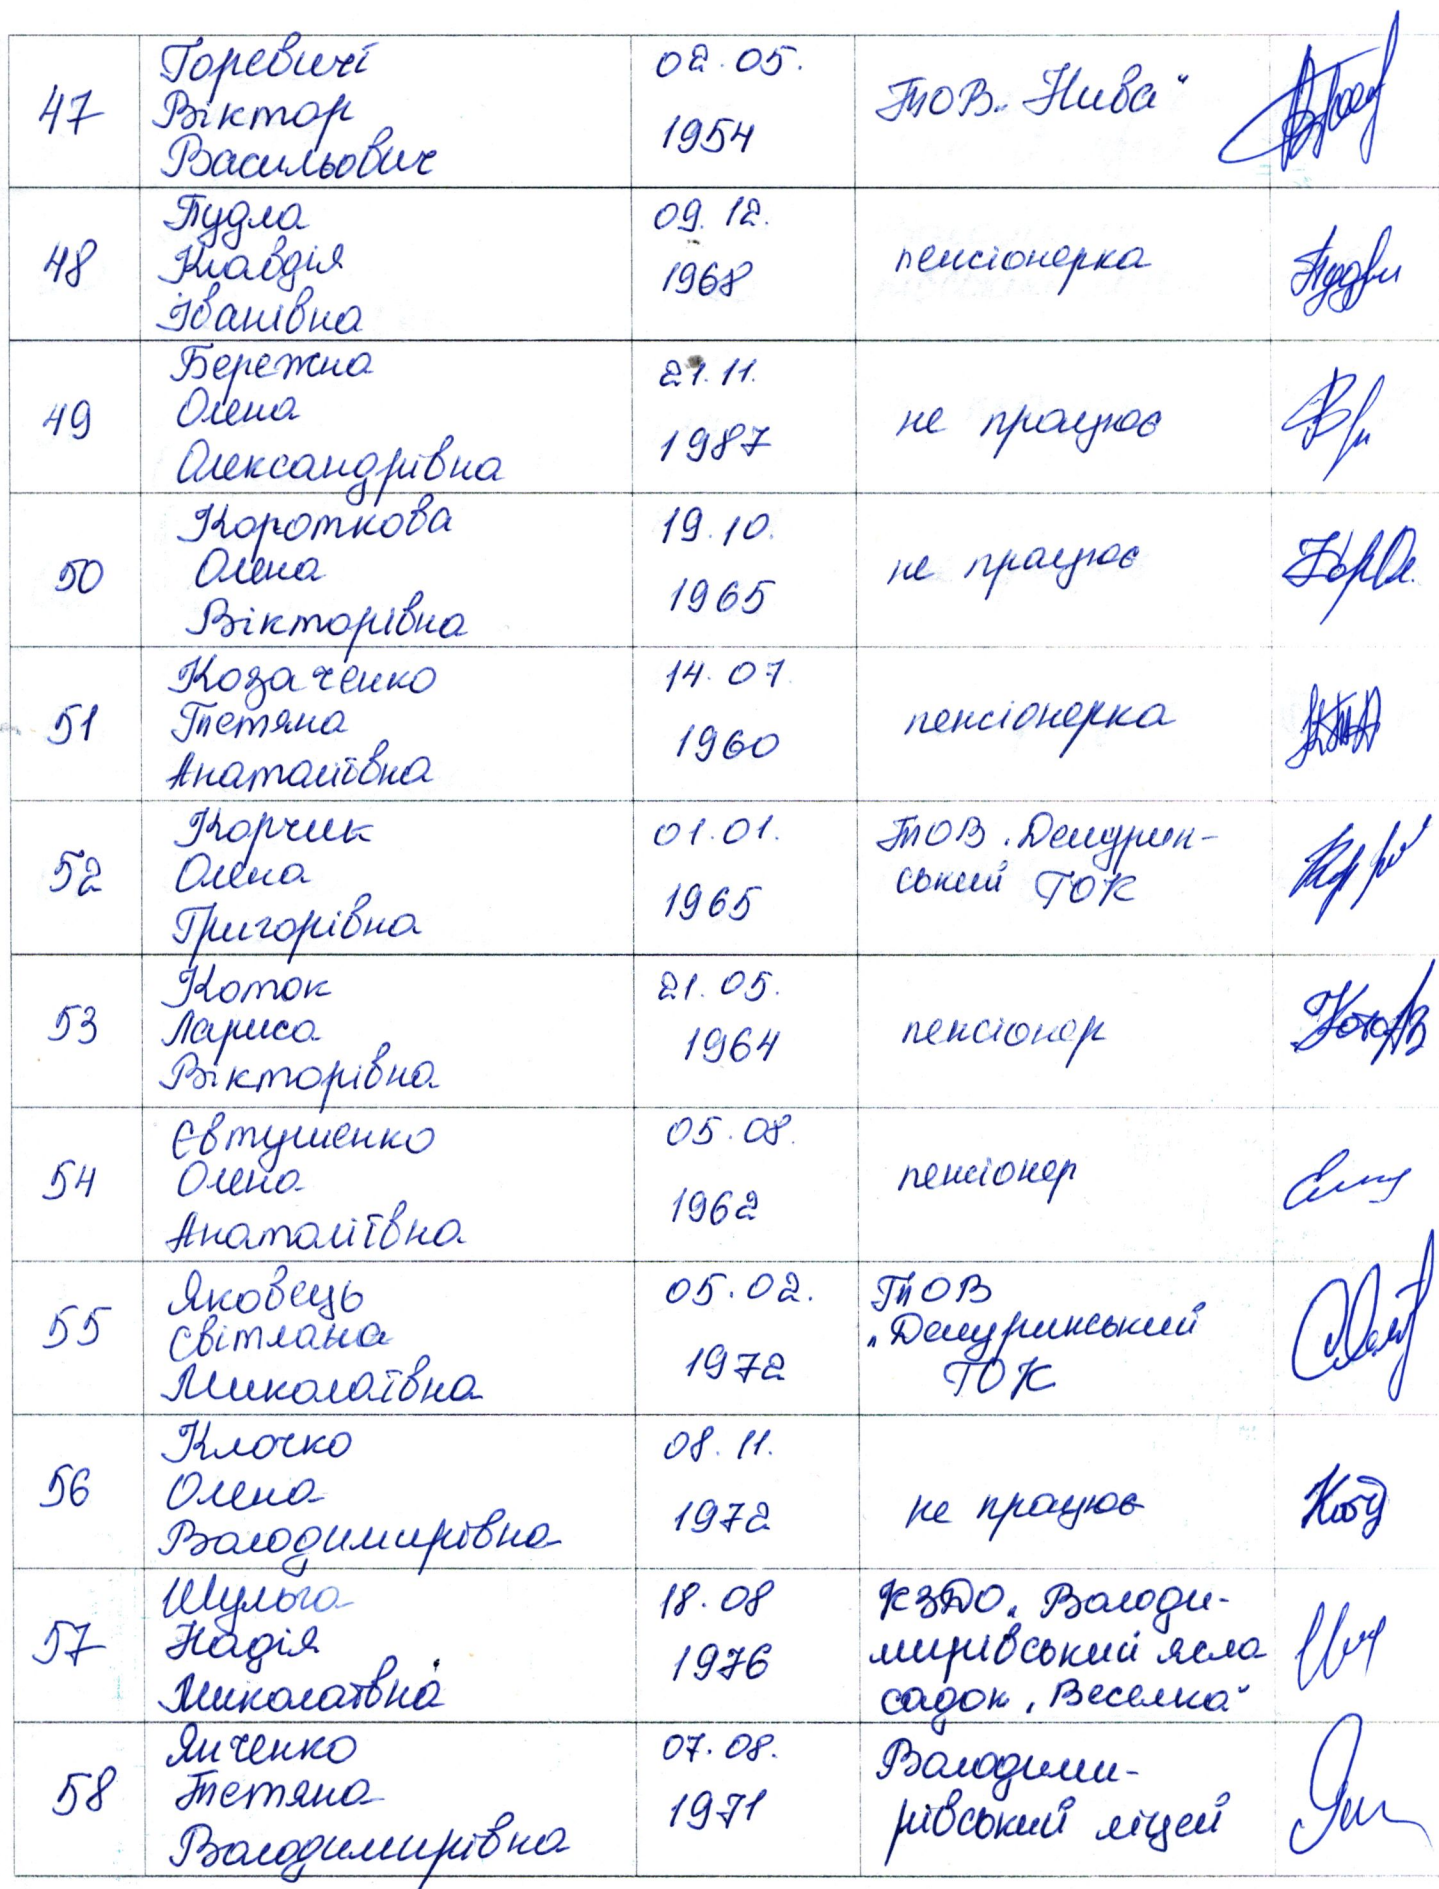 47
Горевичі
Віктор
Васильович
02.05.
1954
ТОВ „Нива“
48
Пудла
Клавдія
Іванівна
09.12.
1968
пенсіонерка
49
Бережна
Олена
Олександрівна
21.11.
1987
не працює
50
Короткова
Олена
Вікторівна
19.10.
1965
не працює
51
Козаченко
Тетяна
Анатоліївна
14.07.
1960
пенсіонерка
52
Корчик
Олена
Григорівна
01.01.
1965
ТОВ „Демурин-
ський ГОК
53
Коток
Лариса
Вікторівна
21.05.
1964
пенсіонер
54
Євтушенко
Олена
Анатоліївна
05.08.
1962
пенсіонер
55
Яковець
Світлана
Миколаївна
05.02.
1972
ТОВ
„Демуринський
ГОК
56
Клочко
Олена
Володимирівна
08.11.
1972
не працює
57
Шульга
Надія
Миколаївна
18.08
1976
КЗДО „Володи-
мирівський ясла
садок „Веселка“
58
Янченко
Тетяна
Володимирівна
07.08.
1971
Володими-
рівський ліцей